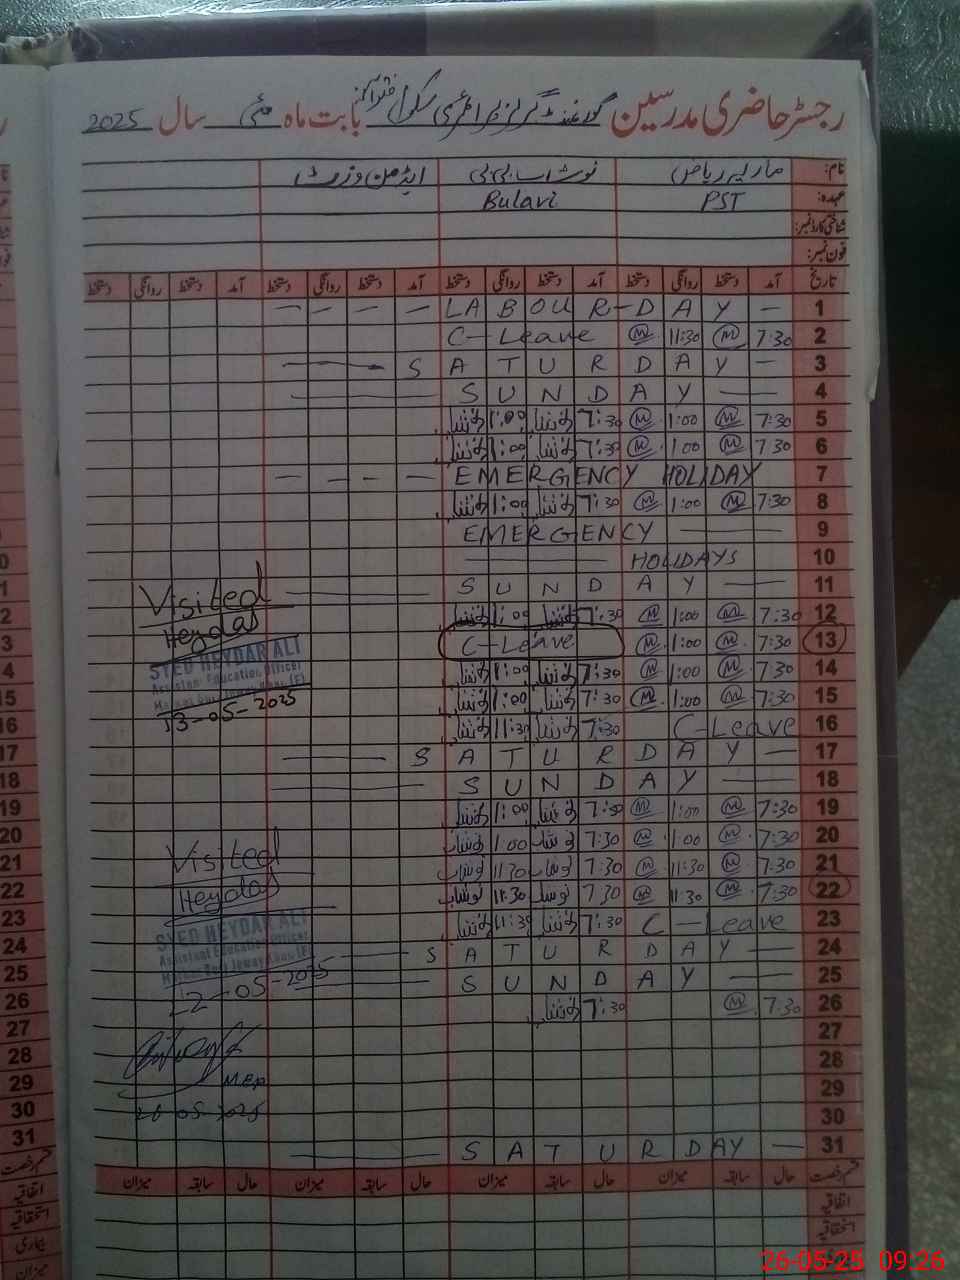 رجسٹر حاضری مدرسین گورنمنٹ گرلز پرائمری سکول بابت ماہ مئی سال 2025
نام: ماریہ ریاض نوشابہ بی بی ایڈمن وزٹ
عہدہ: PST Bulavi
شناختی کارڈ نمبر:
فون نمبر:
تاریخ آمد دستخط روانگی دستخط آمد دستخط روانگی دستخط آمد دستخط روانگی دستخط آمد دستخط روانگی دستخط
1 LABOUR-DAY
2 7:30 M 11:30 M C-Leave
3 SATURDAY
4 SUNDAY
5 7:30 M 1:00 M 7:30 نوشابہ 1:00 نوشابہ
6 7:30 M 1:00 M 7:30 نوشابہ 1:00 نوشابہ
7 EMERGENCY HOLIDAY
8 7:30 M 1:00 M 7:30 نوشابہ 1:00 نوشابہ
9 EMERGENCY
10 HOLIDAYS
11 SUNDAY
12 7:30 M 1:00 M 7:30 نوشابہ 1:00 نوشابہ
13 7:30 M 1:00 M C-Leave
14 7:30 M 1:00 M 7:30 نوشابہ 1:00 نوشابہ
15 7:30 M 1:00 M 7:30 نوشابہ 1:00 نوشابہ
16 C-Leave 7:30 نوشابہ 11:30 نوشابہ
17 SATURDAY
18 SUNDAY
19 7:30 M 1:00 M نوشابہ 1:00 نوشابہ
20 7:30 M 1:00 M 7:30 نوشابہ 1:00 نوشابہ
21 7:30 M 11:30 M 7:30 نوشابہ 11:30 نوشابہ
22 7:30 M 11:30 M 7:30 نوشابہ 11:30 نوشابہ
23 C-Leave 7:30 نوشابہ 11:30 نوشابہ
24 SATURDAY
25 SUNDAY
26 7:30 M 7:30 نوشابہ
27
28
29
30
31 SATURDAY
Visited
Heydar
SYED HEYDAR ALI
Assistant Education Officer
13-05-2025
Visited
Heydar
SYED HEYDAR ALI
Assistant Education Officer
22-05-2025
26-05-2025
قسم رخصت حال سابقہ میزان حال سابقہ میزان حال سابقہ میزان حال سابقہ میزان
اتفاقیہ
استحقاقیہ
26-05-25 09:26